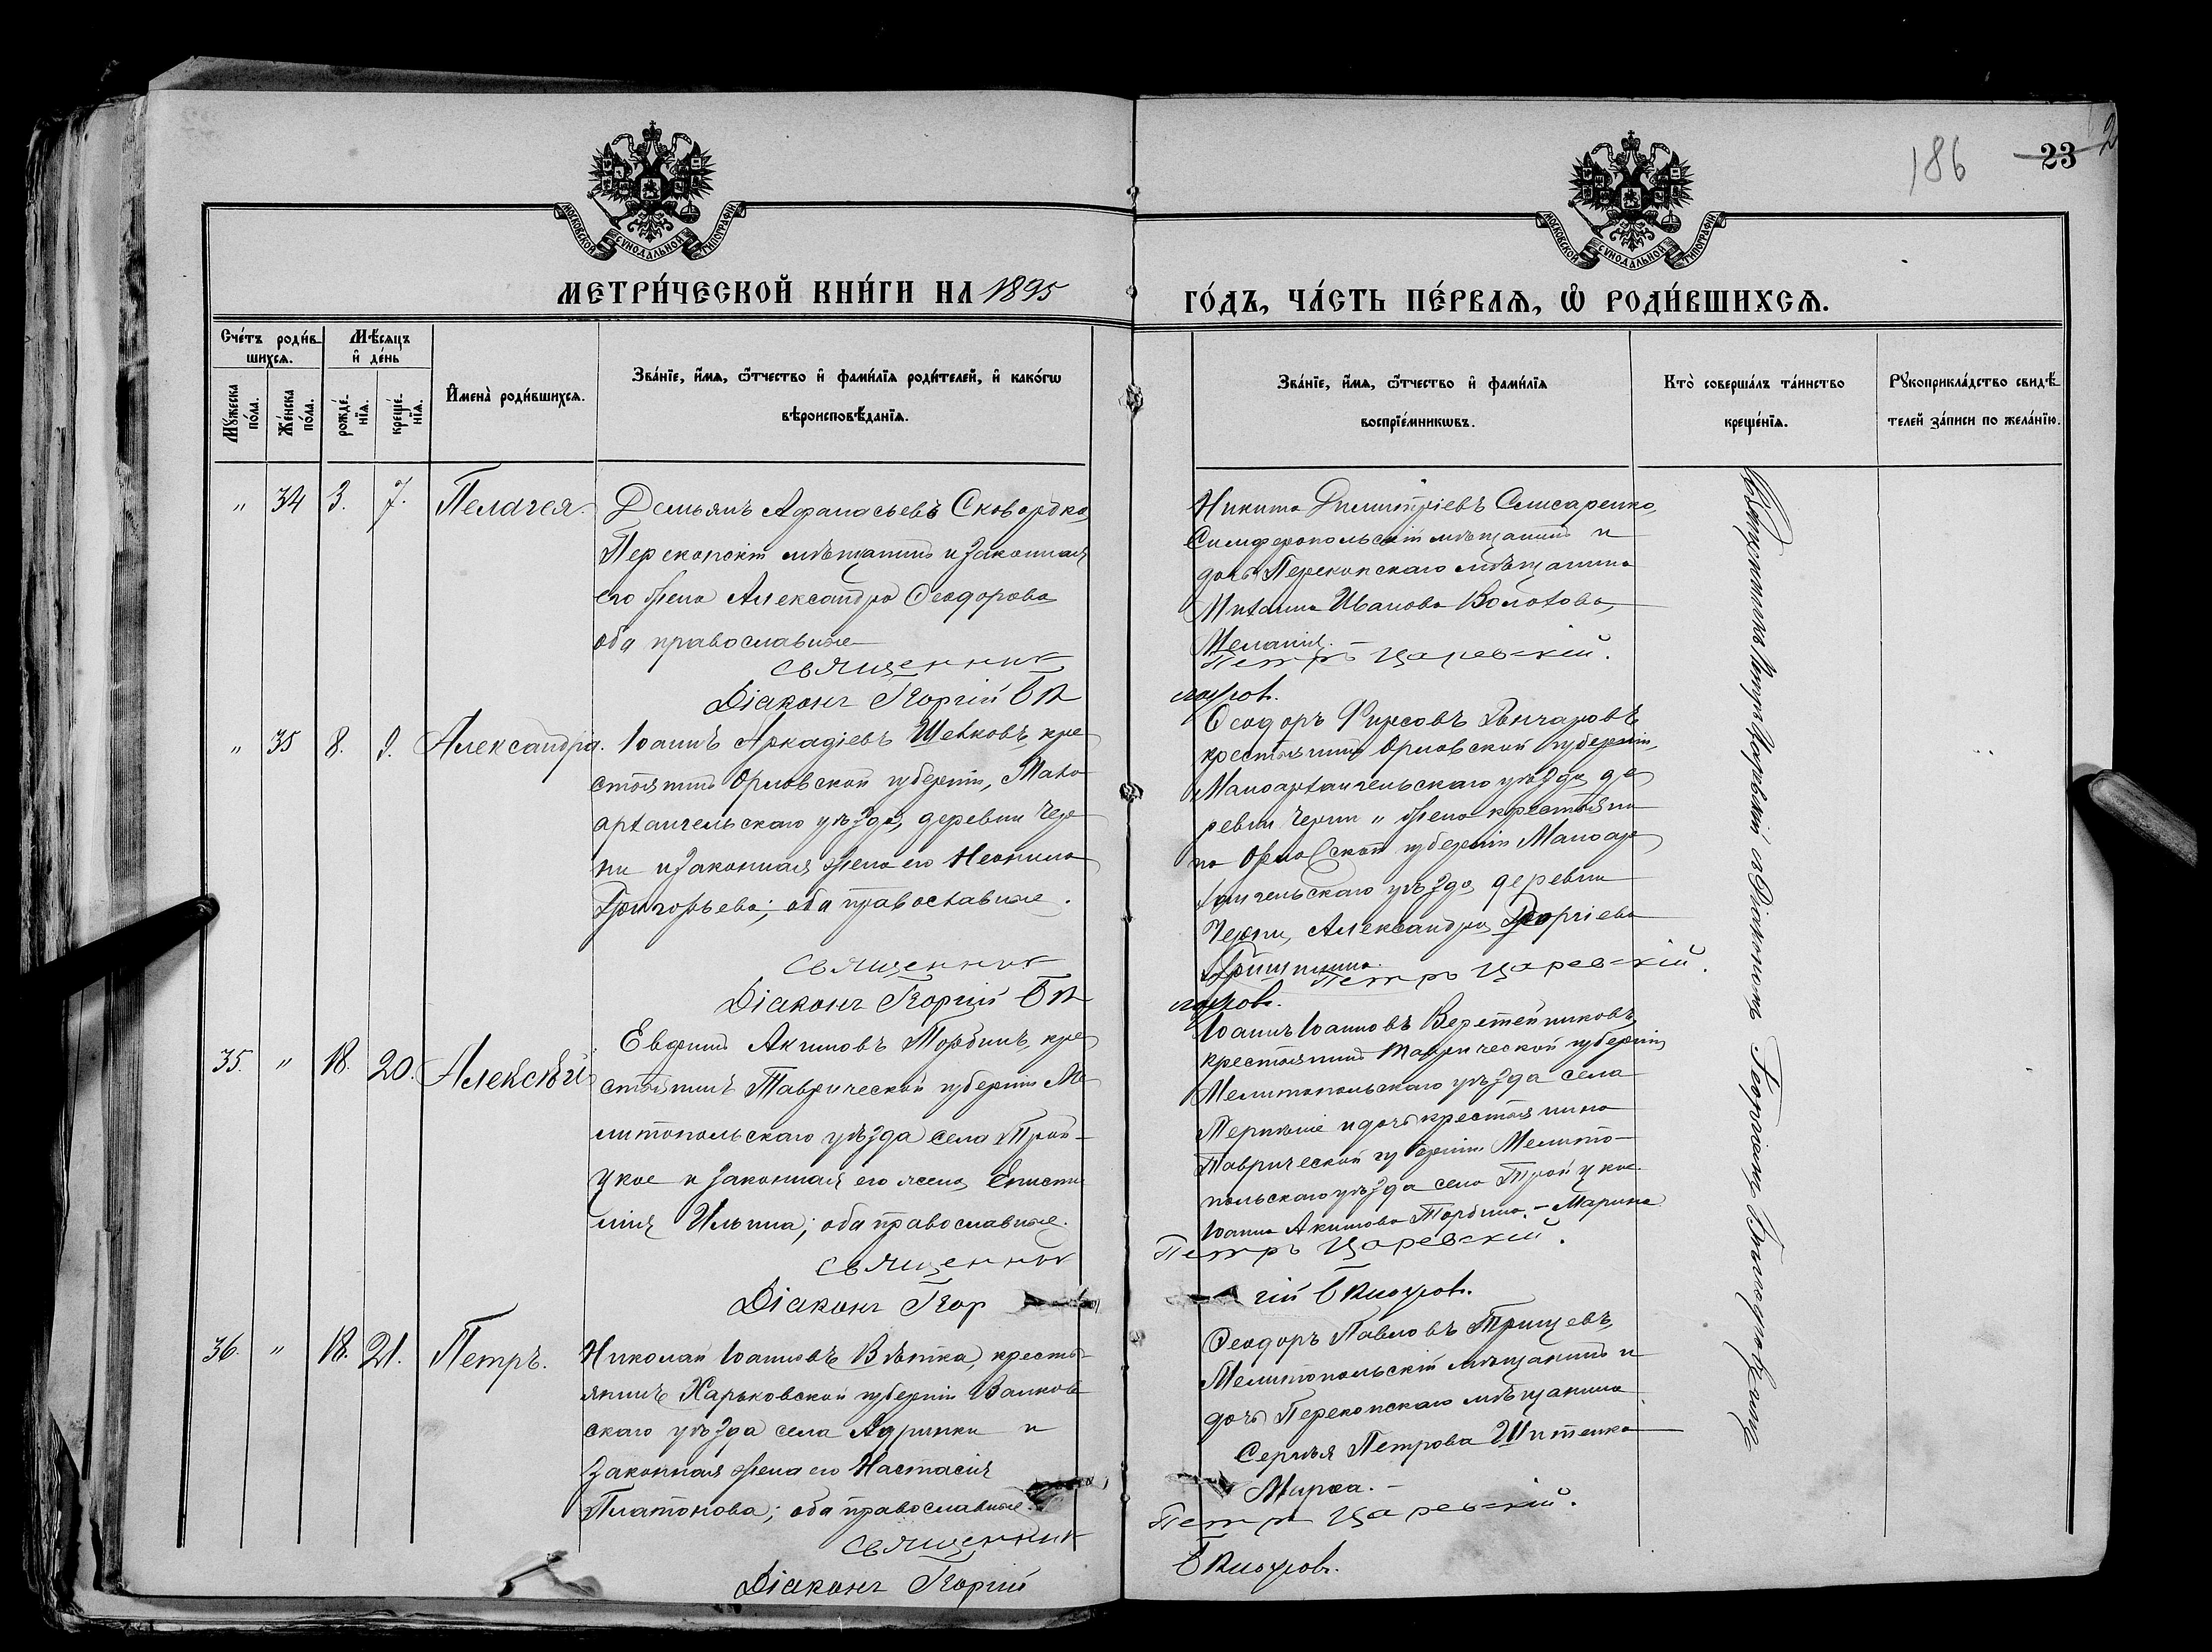 186
23
2
МОСКОВСКОЙ СѴНОДАЛЬНОЙ ТИПОГРАФІИ
МОСКОВСКОЙ СѴНОДАЛЬНОЙ ТИПОГРАФІИ
МЕТРИ́ЧЕСКОЙ КНИ́ГИ НА 1895
ГО́ДЪ, ЧА́СТЬ ПЕ́РВАѦ, Ѡ҆ РОДИ́ВШИХСѦ.
Сче́тъ роди́в-
шихсѧ.
Мѣ́сѧцъ
и҆ де́нь
Мꙋ́жеска по́ла.
Же́нска по́ла.
рожде́-нїѧ.
креще́-нїѧ.
И҆мена̀ роди́вшихсѧ.
Зва́нїе, и҆́мѧ, ѻ҆́тчество и҆ фами́лїѧ роди́телей, и҆ како́гѡ
вѣроисповѣ́данїѧ.
Зва́нїе, и҆́мѧ, ѻ҆́тчество и҆ фами́лїѧ
воспрїе́мникѡвъ.
Кто̀ соверша́лъ та́инство
креще́нїѧ.
Рꙋкоприкла́дство свидѣ́-
телей за́писи по жела́нїю.
" 34 3. 7. Пелагея.
Демьянъ Аѳанасьевъ Сковородко,
Перекопскій мѣщанинъ и законная
его жена Александра Ѳеодорова
оба православные
Священник
Діаконъ Георгій Вин
Никита Димитріевъ Слисаренко,
Симферопольскій мѣщанинъ и
дочь Перекопскаго мѣщанина
Михаила Иванова Волохова,
Меланія.
Петръ Царевскій.
" 35 8. 9. Александра.
Іоаннъ Аркадіевъ Шевковъ, кре
стьянинъ Орловской губерніи, Мало
архангельскаго уѣзда, деревни Чер
ни и законная жена его Неонила
Григорьева; оба православные.
Священник
Діаконъ Георгій Вин
Ѳеодоръ Фирсовъ Гончаровъ
крестьянинъ Орловской губерніи,
Малоархангельскаго уѣзда, де
ревни Черни и жена крестьяни
на Орловской губерніи Малоар
хангельскаго уѣзда деревни
Черни, Александра Георгіева
Гришинина.
Петръ Царевскій.
35. " 18. 20. Алексѣй
Евфимъ Акимовъ Торбинъ, кре
стьянинъ Таврической губерніи Ме
литопольскаго уѣзда села Трои-
цкое и законная его жена Еписти
мія Ильина; оба православные.
Священник
Діаконъ Геор
Іоаннъ Іоанновъ Веретенниковъ,
крестьянинъ Таврической губерніи,
Мелитопольскаго уѣзда села
Терпѣніе и дочь крестьянина
Таврической губерніи Мелито-
польскаго уѣзда села Троицкое
Іоанна Акимова Торбина. - Марина
Петръ Царевскій.
гій Виноград.
36. " 18. 21. Петръ.
Николай Іоанновъ Вѣтка, кресть-
янинъ Харьковской губерніи Валков
скаго уѣзда села и
законная жена его Настасія
Платонова; оба православные.
Священник
Діаконъ Георгій
Ѳеодоръ Павловъ Трищевъ,
Мелитопольскій мѣщанинъ и
дочь Перекопскаго мѣщанина
Сергѣя Петрова Шитенка
Петръ Царевскій.
Священникъ Петръ Царевскій съ Діакономъ Георгіемъ